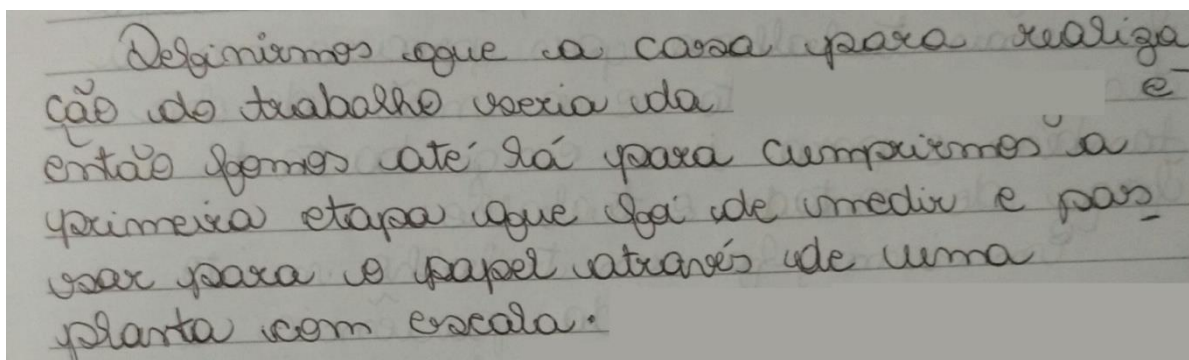 Definirmos que a casa para realiza
ção do trabalho seria da e
então fomos até lá para cumprirmos a
primeira etapa que foi de medir e pas-
sar para o papel através de uma
planta com escala.